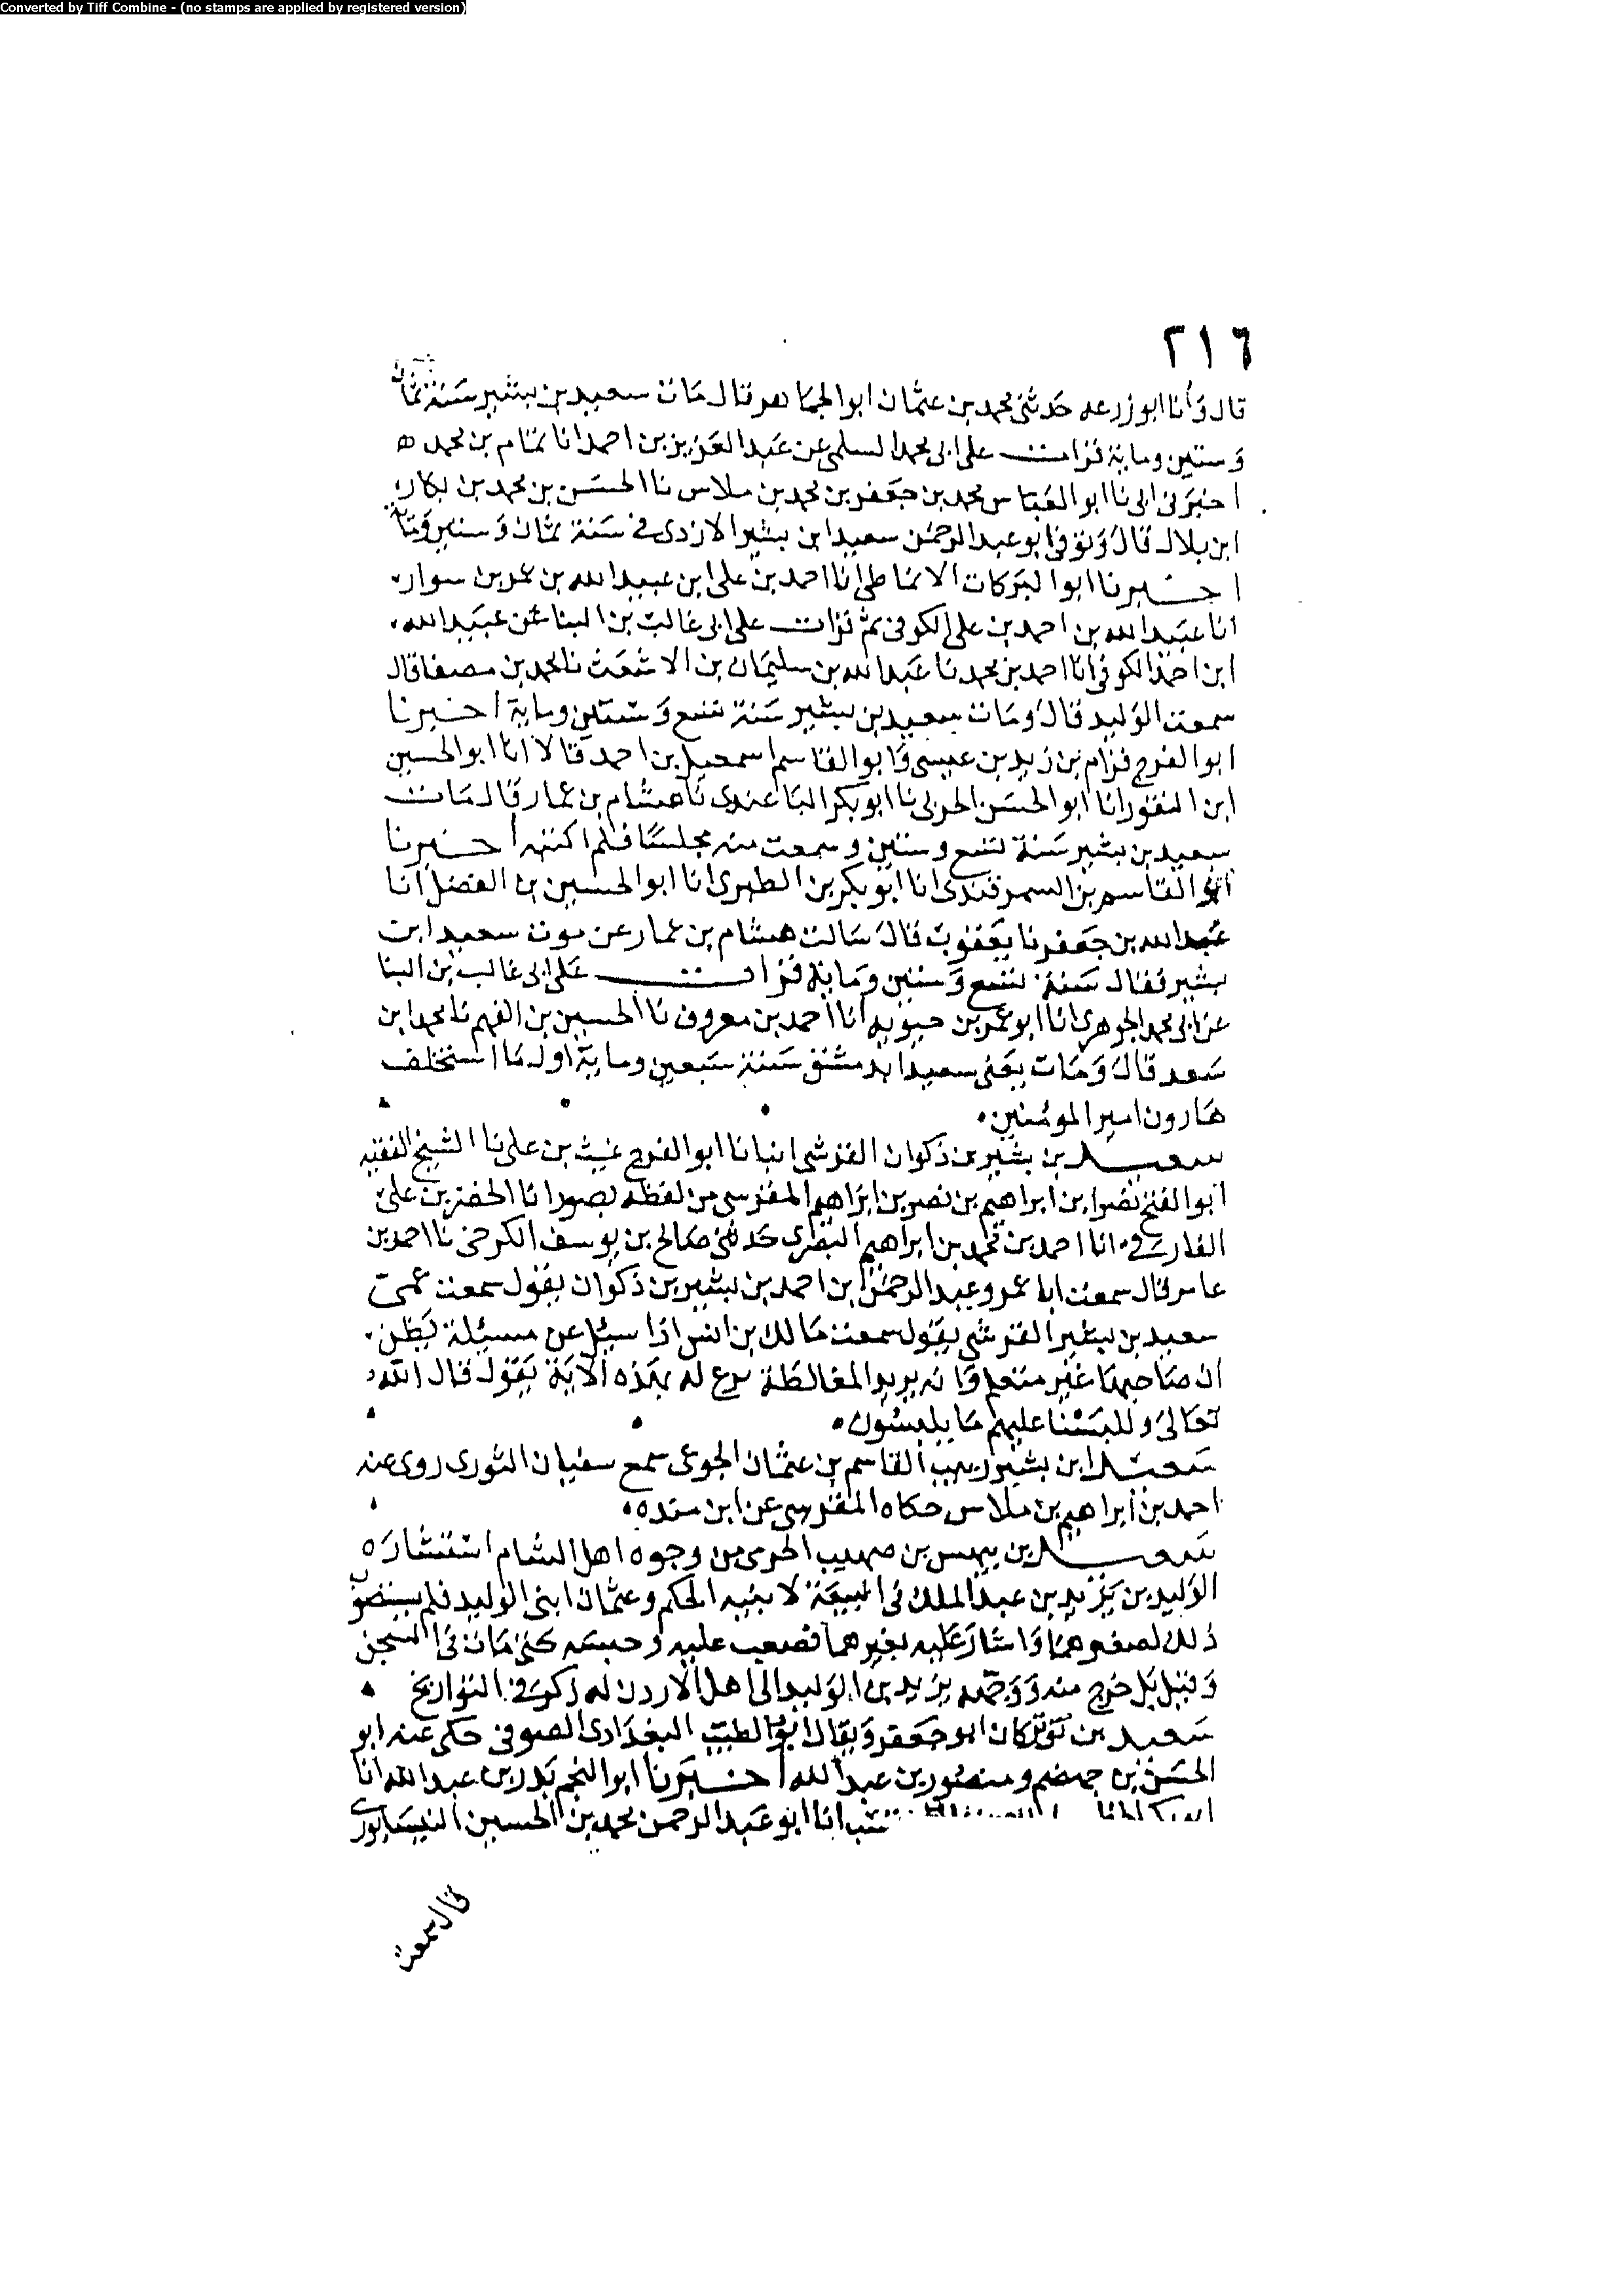 Converted by Tiff Combine - (no stamps are applied by registered version)
٢١٦
قال وأنا ابو زرعه حدثني محمد بن عثمان ابو الجماهر قال مات سعيد بن بشير سنة ثمان
وستين وماية قرات على ابي محمد السلمي عن عبد العزيز بن احمد انا تمام بن محمد
اخبرني ابي نا ابو العباس محمد بن جعفر بن محمد بن ملاس نا الحسن بن محمد بن بكار
ابن بلال قال وتوفي ابو عبد الرحمن سعيد ابن بشير الازدي في سنة ثمان وستين وماية
اخبرنا ابو البركات الانماطي انا احمد بن علي ابن عبيد الله بن عمر بن سوار
انا عبيد الله بن احمد بن علي الكوفي ثم قرات على ابي غالب بن البنا عن عبيد الله
ابن احمد الكوفي انا احمد بن محمد نا عبد الله بن سليمان بن الاشعث نا محمد بن مصفا قال
سمعت الوليد قال ومات سعيد بن بشير سنة تسع وستين وماية اخبرنا
ابو الفرج قوام بن زيد بن عيسى وابو القاسم اسمعيل بن احمد قالا انا ابو الحسين
ابن النقور انا ابو الحسن الحربي نا ابو بكر الباغندي نا هشام بن عمار قال مات
سعيد بن بشير سنة تسع وستين وسمعت منه مجلسا فلم اكتبه اخبرنا
ابو القاسم بن السمرقندي انا ابو بكر بن الطبري انا ابو الحسين بن الفضل انا
عبد الله بن جعفر نا يعقوب قال سالت هشام بن عمار عن موت سعيد ابن
بشير فقال سنة تسع وستين وماية قرات على ابي غالب بن البنا
عن ابي محمد الجوهري انا ابو عمر بن حيويه انا احمد بن معروف نا الحسين بن الفهم نا محمد ابن
سعد قال ومات يعني سعيدا بدمشق سنة سبعين وماية اول ما استخلف
هارون امير المومنين
سعيد بن بشير بن ذكوان القرشي انبانا ابو الفرج غيث بن علي نا الشيخ الفقيه
ابو الفتح نصر ابن ابراهيم بن نصر بن ابراهيم المقدسي من لفظه بصور انا الخضر بن علي
الفارسي انا احمد بن محمد بن ابراهيم حدثني صالح بن يوسف الكرخي نا احمد بن
عامر قال سمعت ابا عمرو عبد الرحمن ابن احمد بن بشير بن ذكوان يقول سمعت عمي
سعيد بن بشير القرشي يقول سمعت مالك بن انس اذا سيل عن مسيلة يظن
ان صاحبها غير متعلم وانه يريد المغالطة نزع له بهذه الآية يقول قال الله
تعالى وللبسنا عليهم ما يلبسون
سعيد ابن بشير ربيب القاسم بن عثمان الجوعي سمع سفيان الثوري روى عنه
احمد بن ابراهيم بن ملاس حكاه المقدسي عن ابن منده
سعيد بن بيهس بن صهيب الجرمي من وجوه اهل الشام استشاره
الوليد بن يزيد بن عبد الملك في البيعة لابنيه الحكم وعثمان ابني الوليد فلم يستصوب
ذلك لصغرهما واشار عليه بغيرهما فصعب عليه وحبسه حتى مات في السجن
وقيل بل خرج منه ووجهه يزيد بن الوليد الى اهل الاردن له ذكر في التواريخ
سعيد بن تركان ابو جعفر ويقال ابو الطيب البغدادي الصوفي حكى عنه ابو
الحسن بن جهضم ومنصور بن عبد الله اخبرنا ابو النجم بدر بن عبد الله انا
ابو بكر الخطيب انا ابو عبد الرحمن محمد بن الحسين النيسابوري
قال سمعت